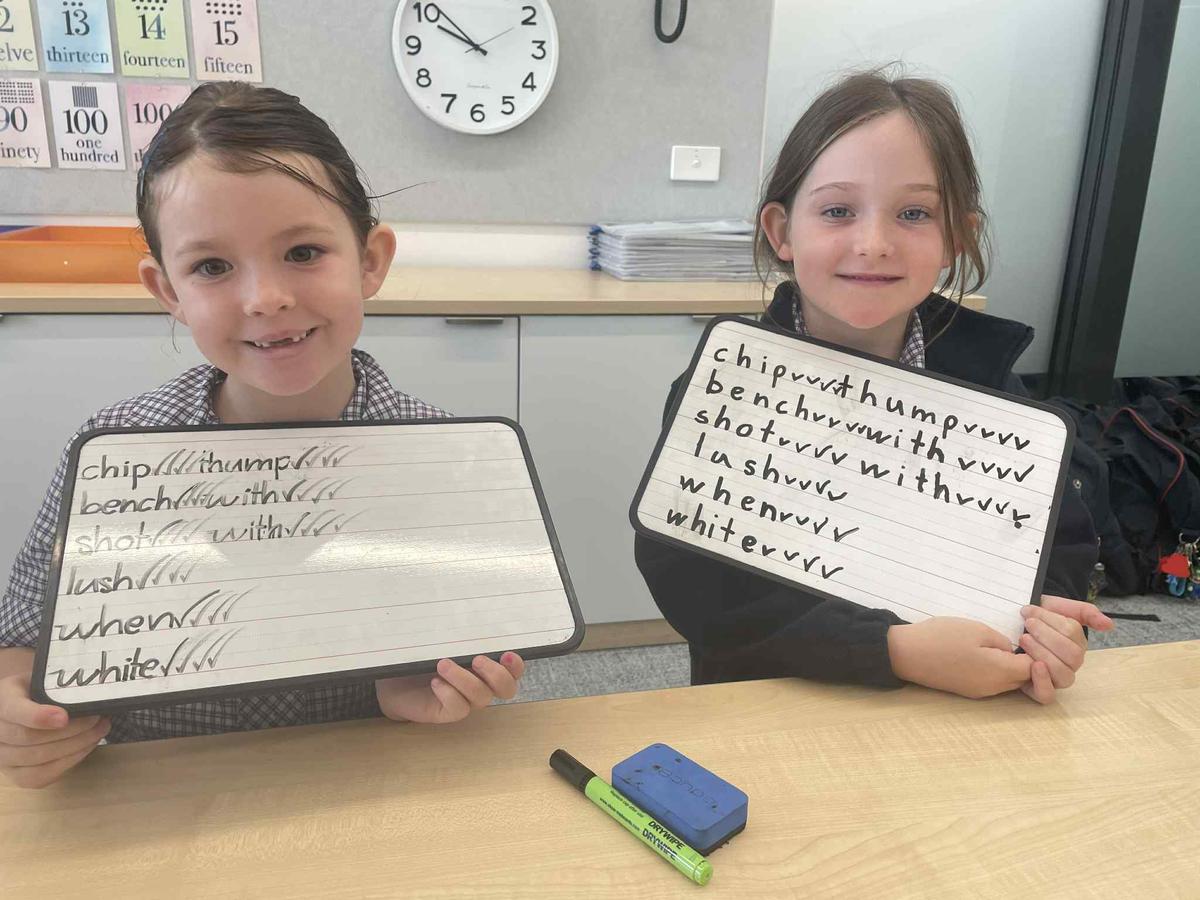 13
thirteen
14
fourteen
15
fifteen
90
100
one
hundred
100
10
2
9
3
8
4
7
6
5
chip✓✓✓✓thump✓✓✓✓
bench✓✓✓✓with✓✓✓✓
shot✓✓✓✓ with✓✓✓✓
lush✓✓✓✓
when✓✓✓✓
white✓✓✓✓
chip✓✓✓✓thump✓✓✓✓
bench✓✓✓✓with✓✓✓✓
shot✓✓✓✓ with✓✓✓✓
lush✓✓✓✓
when✓✓✓✓
white✓✓✓✓
DRYWIPE
DRYWIPE